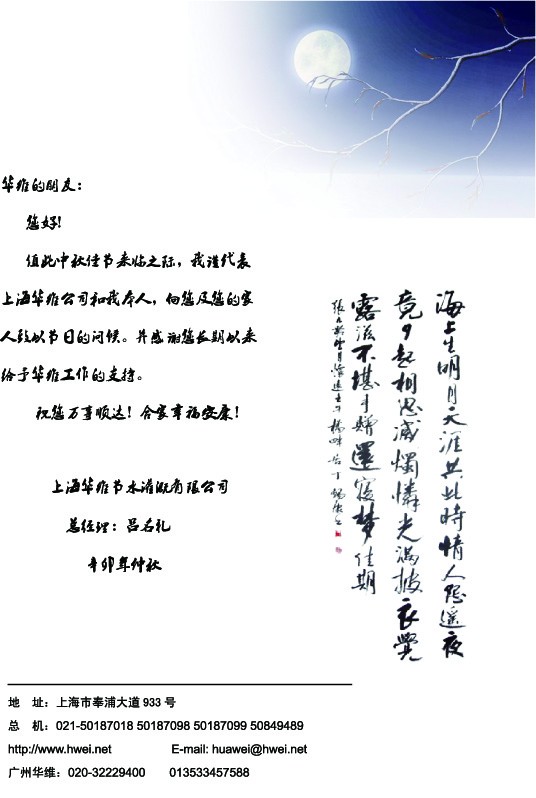 华维的朋友：
您好!
值此中秋佳节来临之际，我谨代表
上海华维公司和我本人，向您及您的家
人致以节日的问候。并感谢您长期以来
给于华维工作的支持。
祝您万事顺达！合家幸福安康！
上海华维节水灌溉有限公司
总经理：吕名礼
辛卯年仲秋
海上生明月天涯共此時情人怨遙夜
竟夕起相思滅燭憐光滿披衣覺
露滋不堪手贈還寢夢佳期
張九齡望月懷遠
地 址：上海市奉浦大道 933 号
总 机：021-50187018 50187098 50187099 50849489
http://www.hwei.net E-mail: huawei@hwei.net
广州华维：020-32229400 013533457588